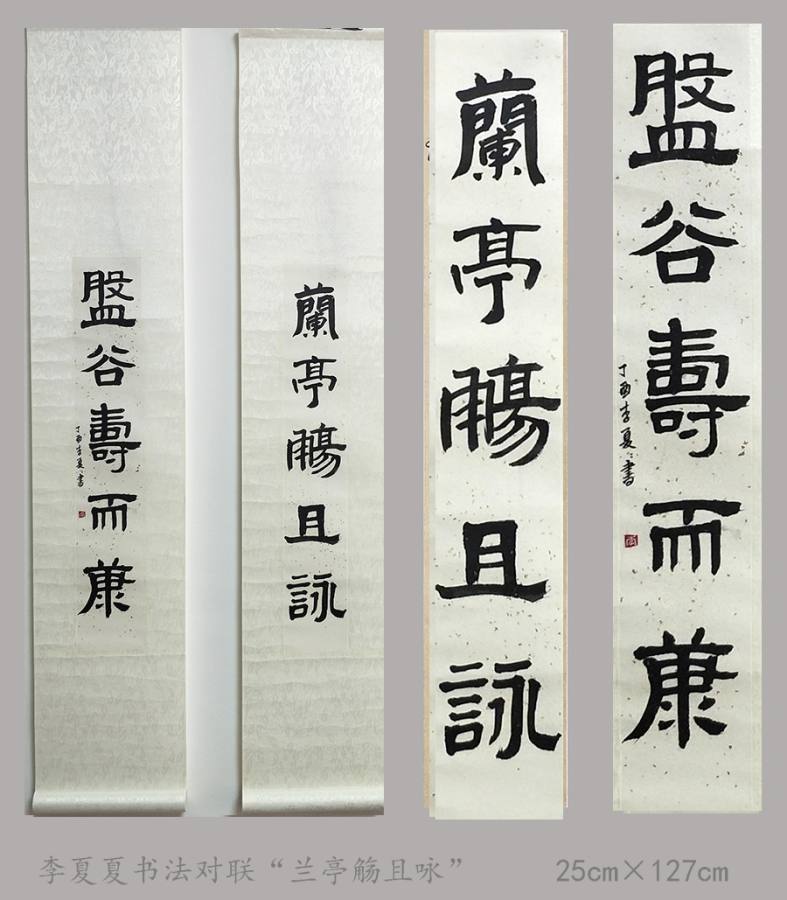 蘭亭觴且詠
盤谷壽而康
丁酉李夏〻書
蘭亭觴且詠
盤谷壽而康
丁酉李夏〻書
李夏夏书法对联“兰亭觞且咏” 25cm×127cm